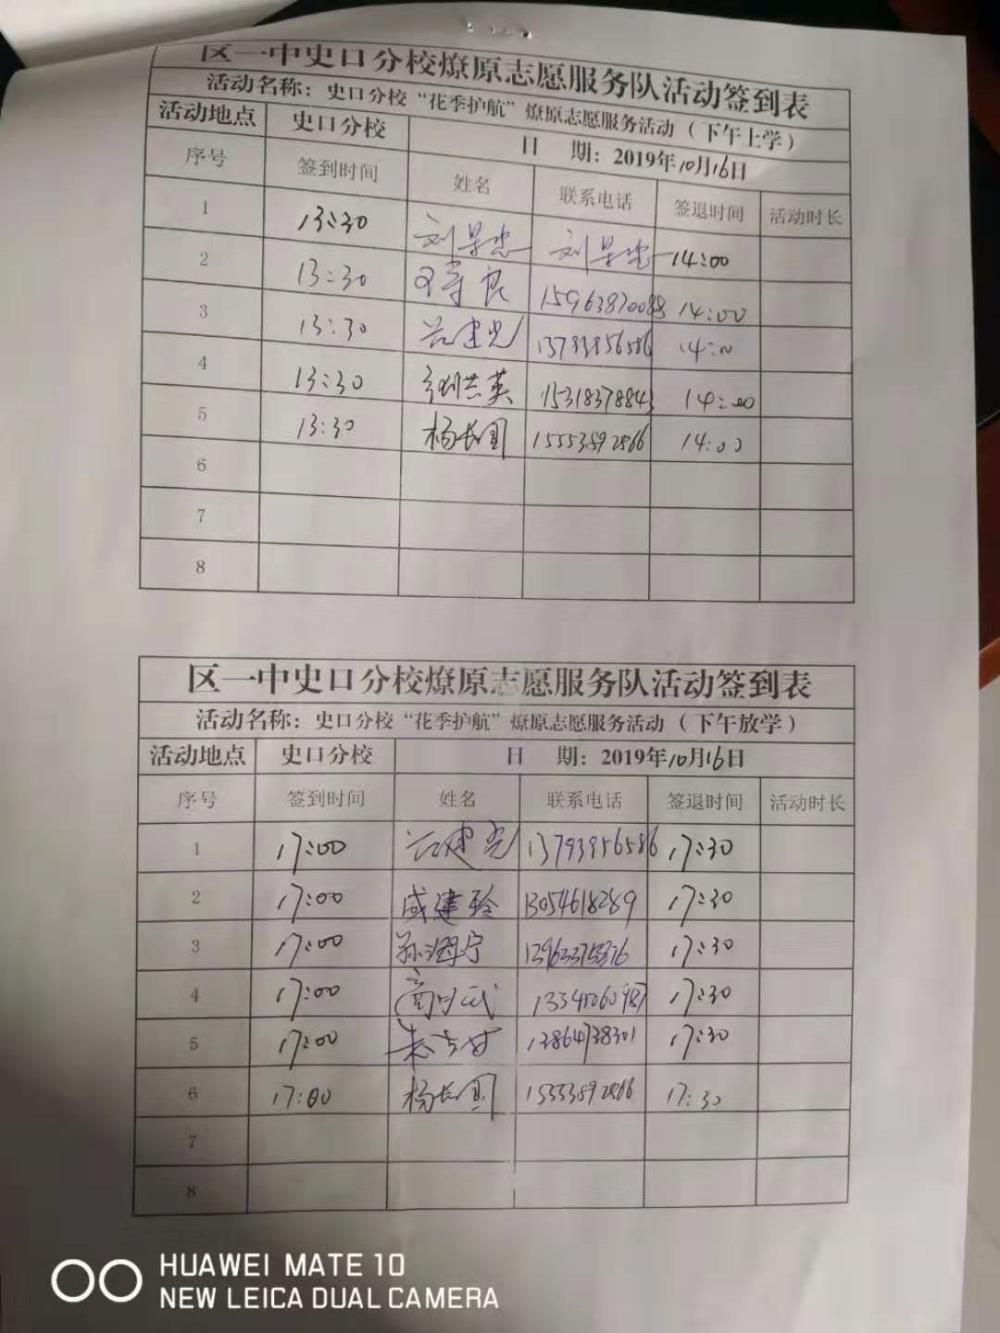 区一中史口分校燎原志愿服务队活动签到表
活动名称：史口分校“花季护航”燎原志愿服务活动（下午上学）
活动地点 史口分校 日 期：2019年10月16日
序号 签到时间 姓名 联系电话 签退时间 活动时长
1 13:30 14:00
2 13:30 15963870088 14:00
3 13:30
4 13:30 15318378843 14:00
5 13:30 杨长国 14:00
6
7
8
区一中史口分校燎原志愿服务队活动签到表
活动名称：史口分校“花季护航”燎原志愿服务活动（下午放学）
活动地点 史口分校 日 期：2019年10月16日
序号 签到时间 姓名 联系电话 签退时间 活动时长
1 17:00 13793956586 17:30
2 17:00 成建玲 13054618289 17:30
3 17:00 孙海宁 17:30
4 17:00 17:30
5 17:00 13864738301 17:30
6 17:00 杨长国 17:30
7
8
HUAWEI MATE 10
NEW LEICA DUAL CAMERA